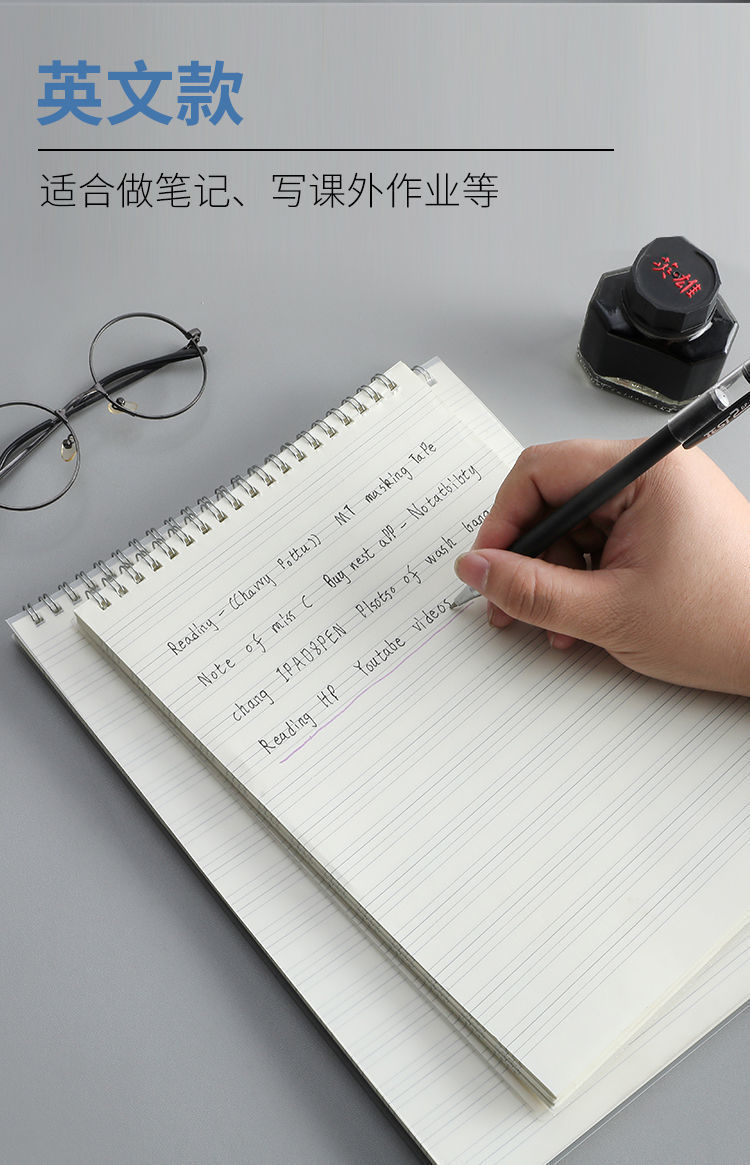 英文款
适合做笔记、写课外作业等
英雄
Reading - ((Charry Pottu)) MT masking TaPe
Note of miss C Buy nest app - Notatbibty
chang IPAD8PEN Plsotso of wash bang
Reading HP Youtube videos